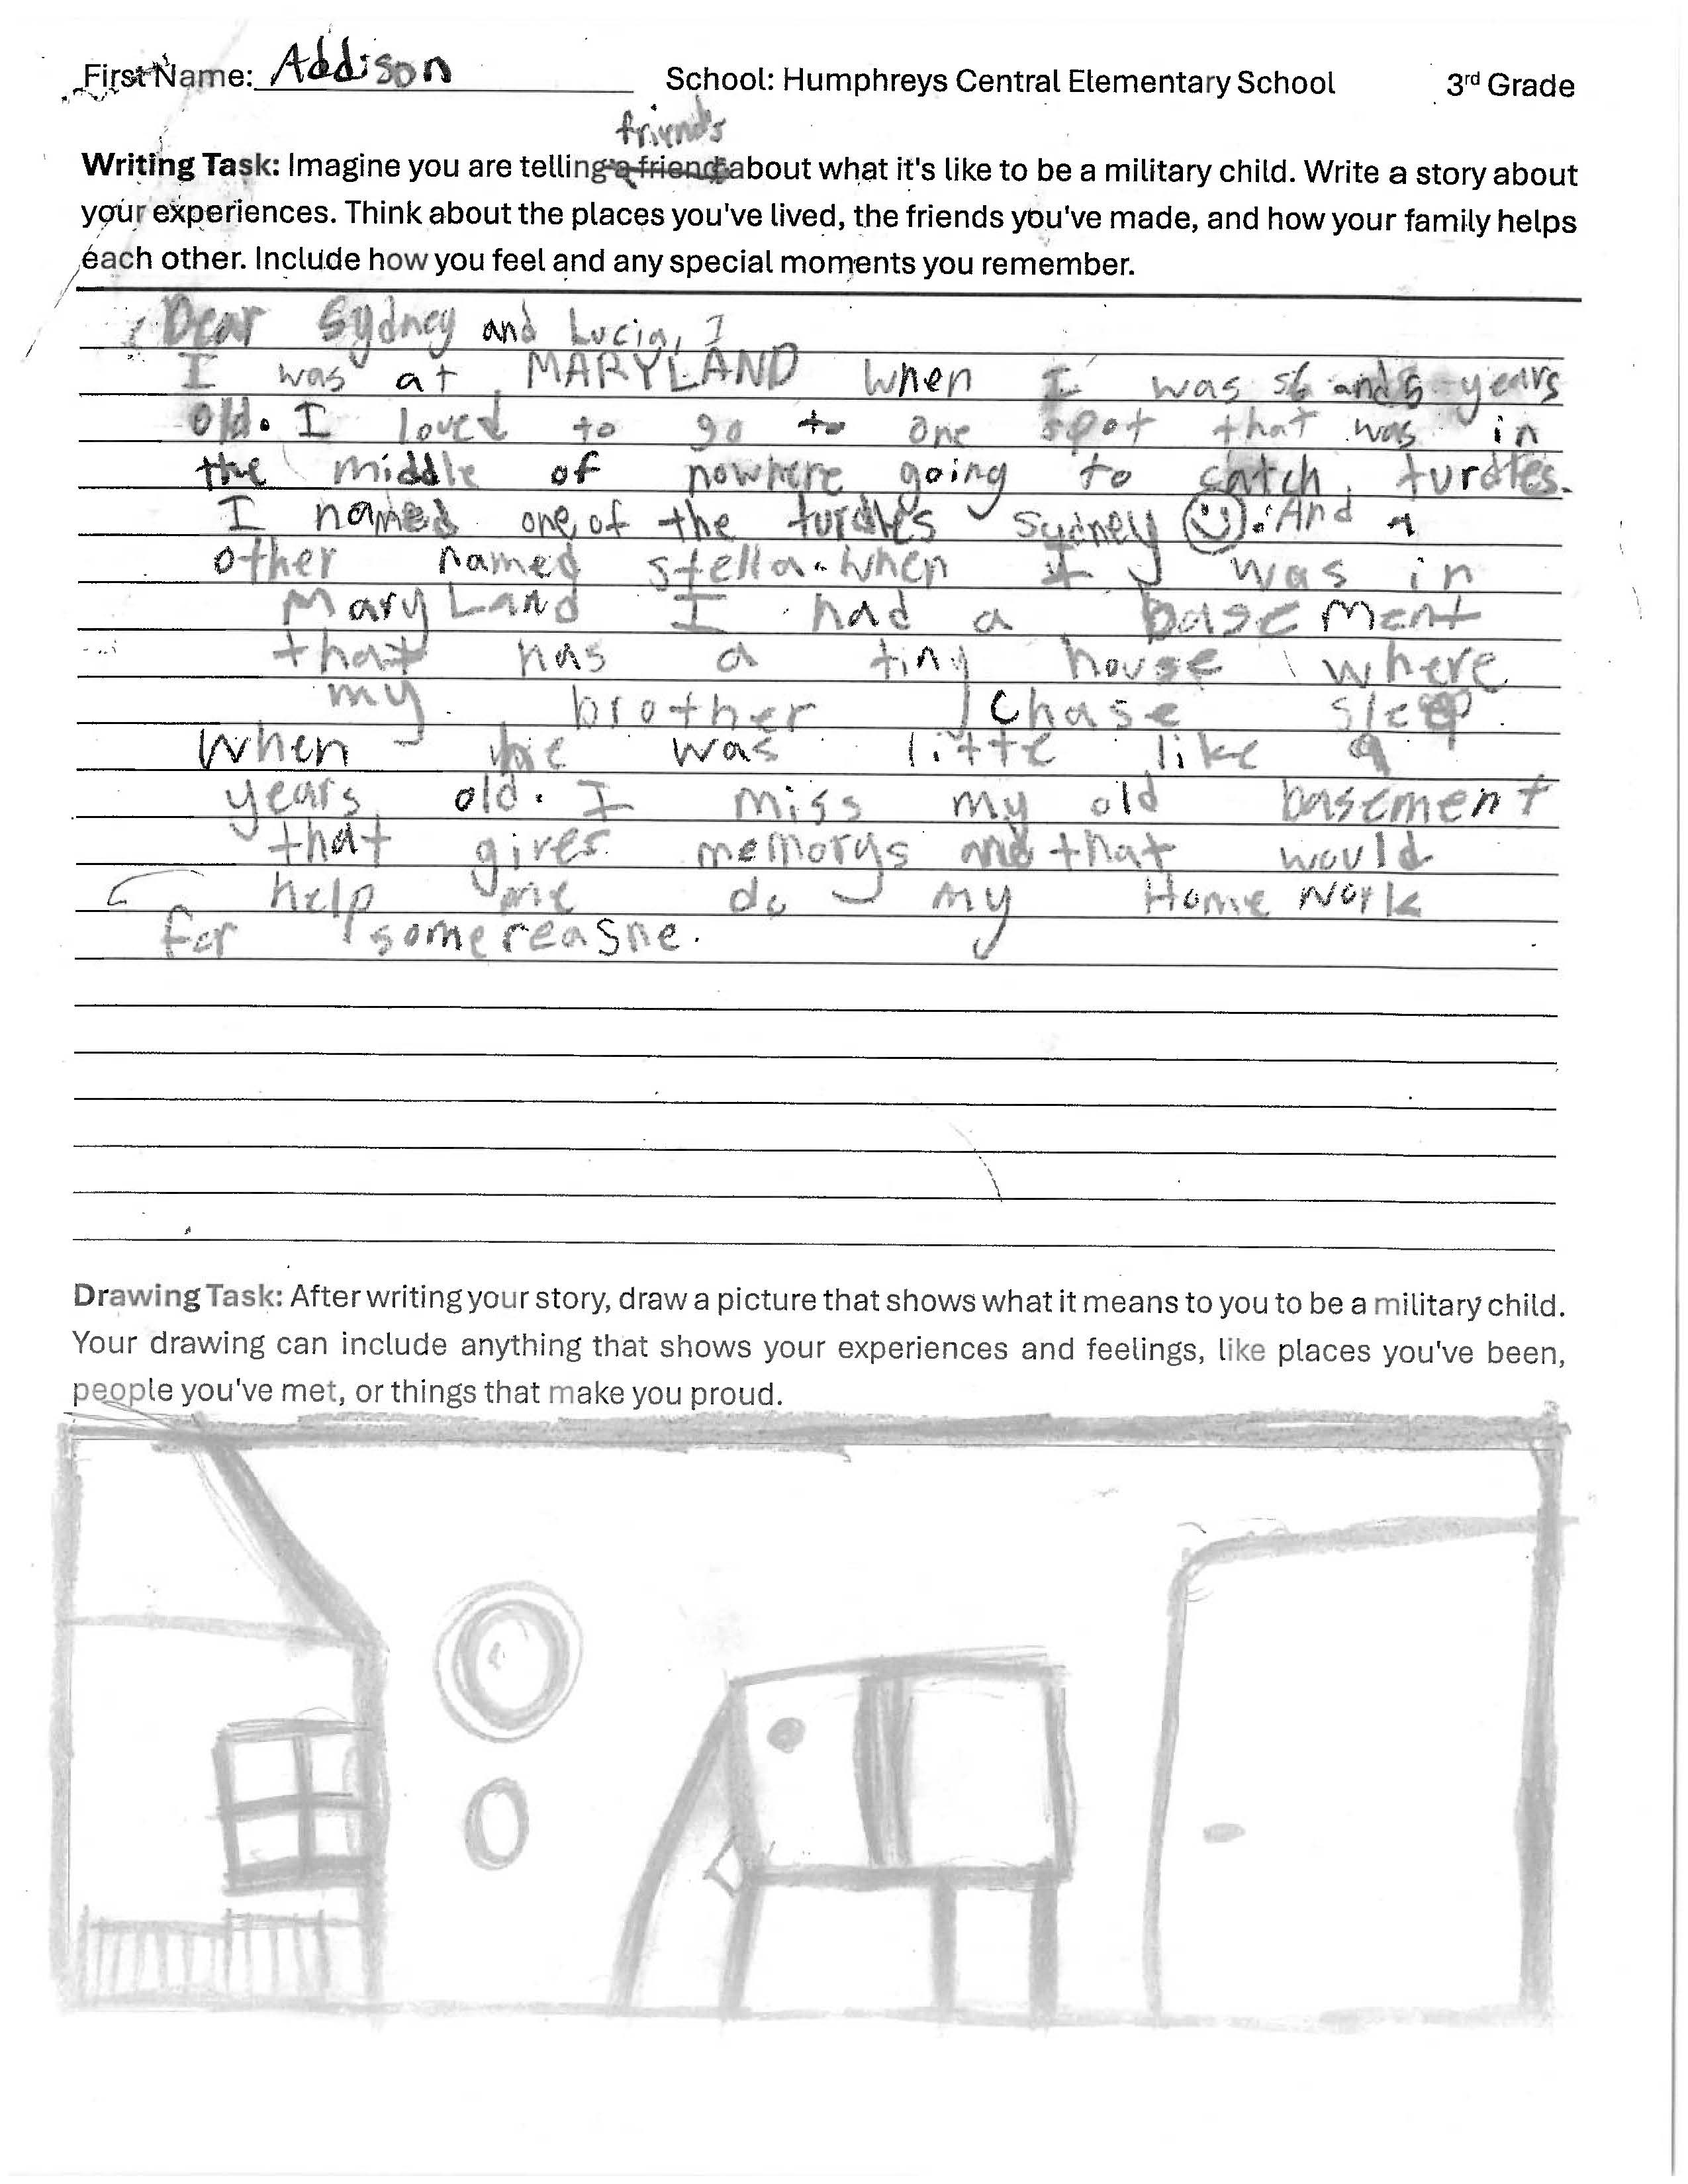 First Name: Addison School: Humphreys Central Elementary School 3rd Grade
friends
Writing Task: Imagine you are telling a friend about what it's like to be a military child. Write a story about
your experiences. Think about the places you've lived, the friends you've made, and how your family helps
each other. Include how you feel and any special moments you remember.
Dear Sydney and Lucia, I
I was at MARYLAND when I was 56 and 6 years
old. I loved to go to one spot that was in
the middle of nowhere going to catch turdles.
I named one of the turdles Sydney ☺. And a
other named stella. when I was in
MaryLand I had a basement
that has a tiny house where
my brother chase sleep
when he was litte like
years old. I miss my old basement
that gives memorys and that would
help me do my Home work
for some reasne.
Drawing Task: After writing your story, draw a picture that shows what it means to you to be a military child.
Your drawing can include anything that shows your experiences and feelings, like places you've been,
people you've met, or things that make you proud.